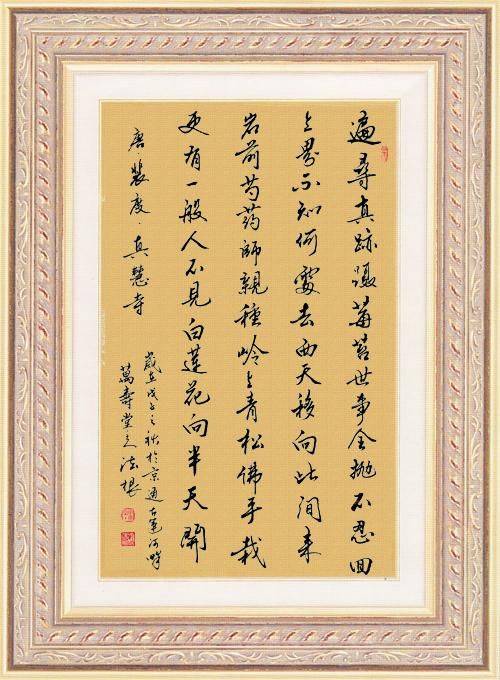 遍尋真跡躡莓苔世事全拋不忍回
上界不知何處去西天移向此間來
岩前芍葯師親種岭上青松佛手栽
更有一般人不見白蓮花向半天開
唐裴度·真慧寺
歲在戊子之秋於京通古運河畔
萬壽堂主法根